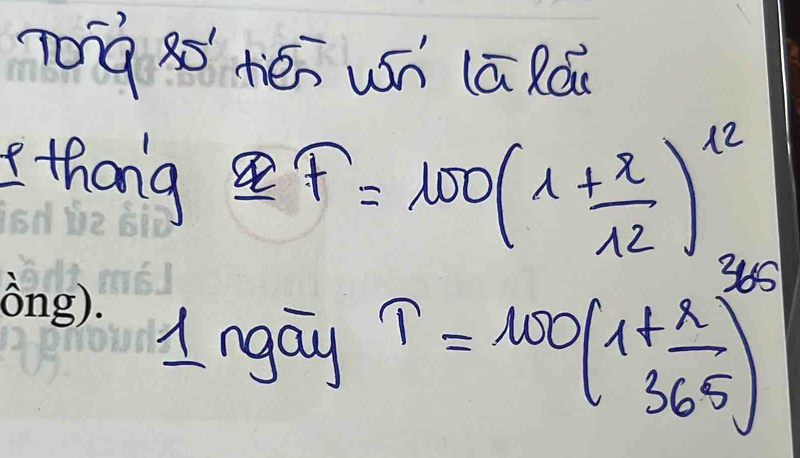 Tổng số tiền vốn là lãi
1 tháng T = 100(1 + r/12)^12
ồng).
1 ngày T = 100(1 + r/365)^365